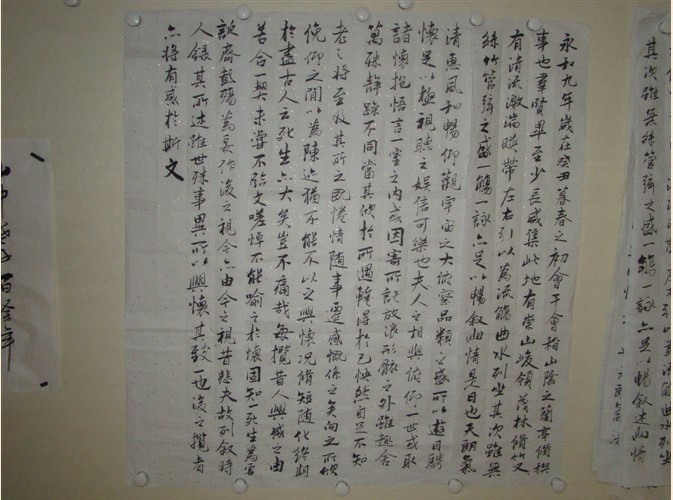 其次雖無絲管弦之盛一觴一詠亦足以暢叙述幽情
永和九年歲在癸丑暮春之初會于會稽山陰之蘭亭脩稧
事也群賢畢至少長咸集此地有崇山峻領茂林脩竹又
有清流激湍暎帶左右引以為流觴曲水列坐其次雖無
絲竹管弦之盛觴一詠亦足以暢叙幽情是日也天朗氣
清惠風和暢仰觀宇宙之大俯察品類之盛所以遊目騁
懷足以極視聽之娛信可樂也夫人之相與俯仰一世或取
諸懷抱悟言一室之內或因寄所託放浪形骸之外雖趣舍
萬殊靜躁不同當其欣於所遇暫得於己怏然自足不知
老之將至及其所之既惓情隨事遷感慨係之矣向之所欣
俛仰之間以為陳迹猶不能不以之興懷況脩短隨化終期
於盡古人云死生亦大矣豈不痛哉每攬昔人興感之由
若合一契未嘗不臨文嗟悼不能喻之於懷固知一死生為虛
誕齊彭殤為妄作後之視今亦由今之視昔悲夫故列叙時
人錄其所述雖世殊事異所以興懷其致一也後之攬者
亦將有感於斯文